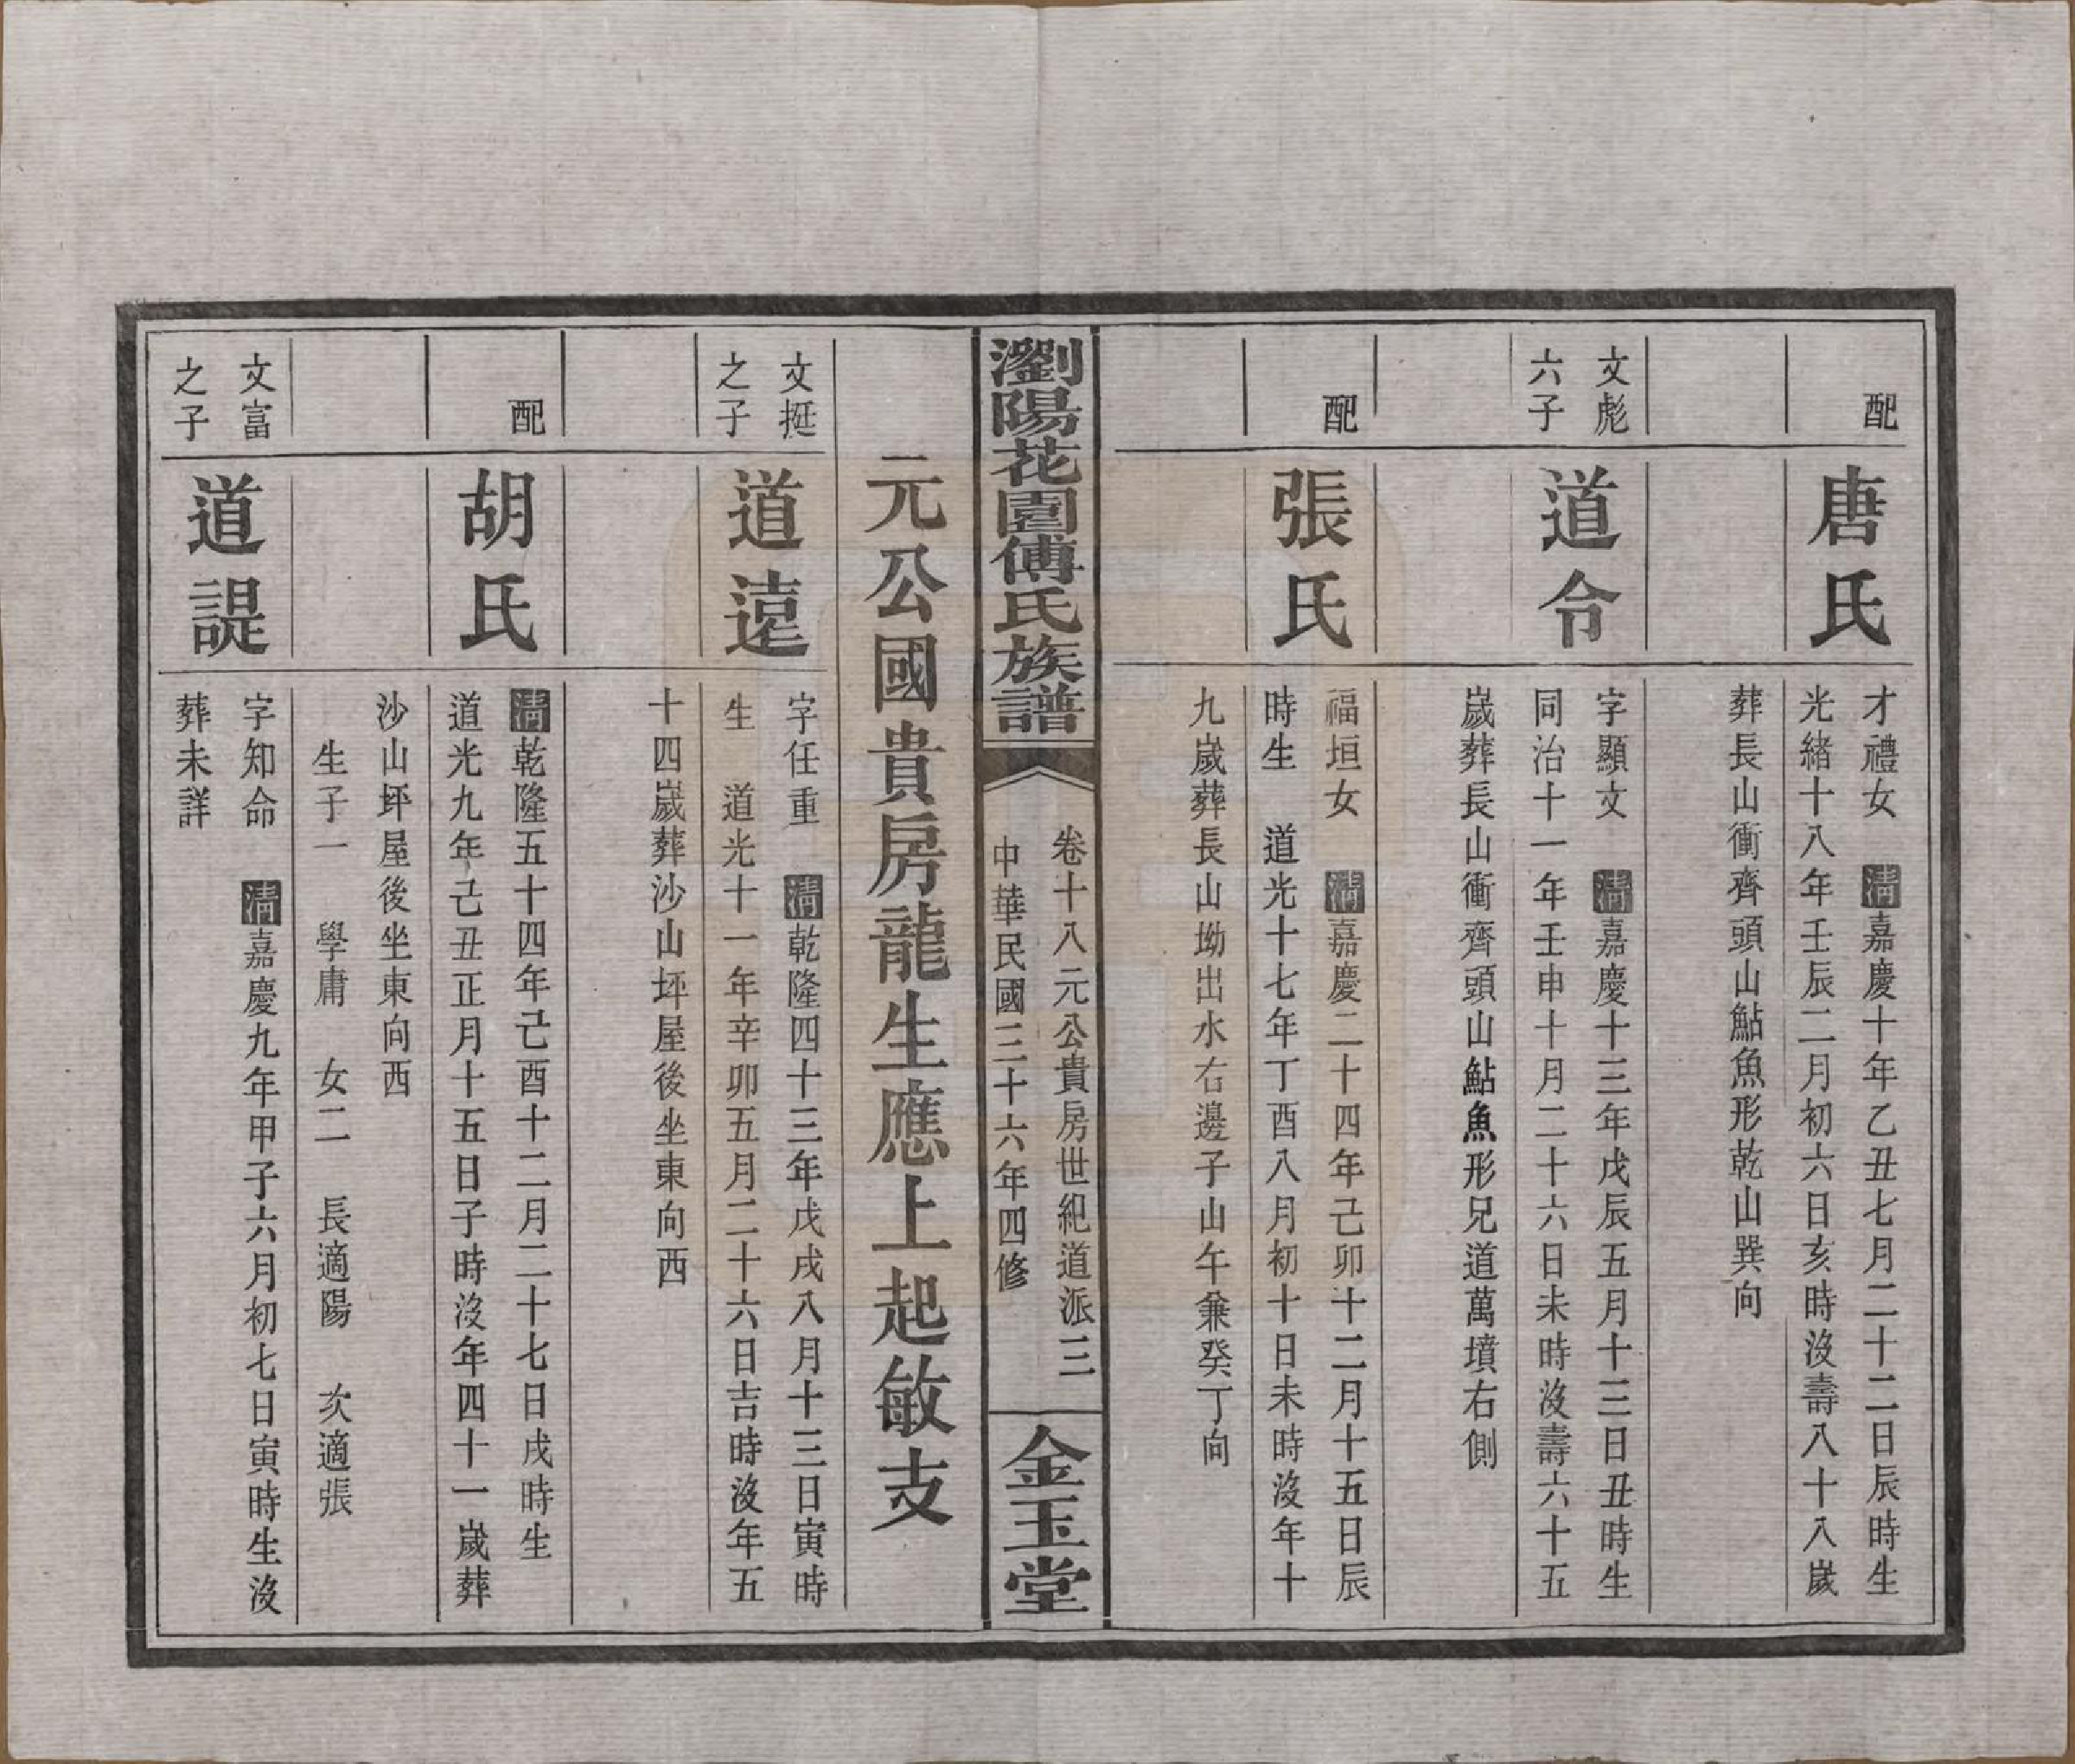 配
唐氏
才禮女　清嘉慶十年乙丑七月二十二日辰時生
光緒十八年壬辰二月初六日亥時沒壽八十八嵗
葬長山衝齊頭山鮎魚形乾山巽向
文彪
六子
道令
字顯文　清嘉慶十三年戊辰五月十三日丑時生
同治十一年壬申十月二十六日未時沒壽六十五
嵗葬長山衝齊頭山鮎魚形兄道萬墳右側
配
張氏
福垣女　清嘉慶二十四年己卯十二月十五日辰
時生　道光十七年丁酉八月初十日未時沒年十
九嵗葬長山坳出水右邊子山午兼癸丁向
瀏陽花園傅氏族譜
卷十八元公貴房世紀道派三
中華民國三十六年四修
金玉堂
元公國貴房龍生應上起敏支
文挺
之子
道遠
字任重　清乾隆四十三年戊戌八月十三日寅時
生　道光十一年辛卯五月二十六日吉時沒年五
十四嵗葬沙山坪屋後坐東向西
配
胡氏
清乾隆五十四年己酉十二月二十七日戌時生
道光九年己丑正月十五日子時沒年四十一嵗葬
沙山坪屋後坐東向西
生子一　學庸　女二　長適陽　次適張
文富
之子
道諟
字知命　清嘉慶九年甲子六月初七日寅時生沒
葬未詳